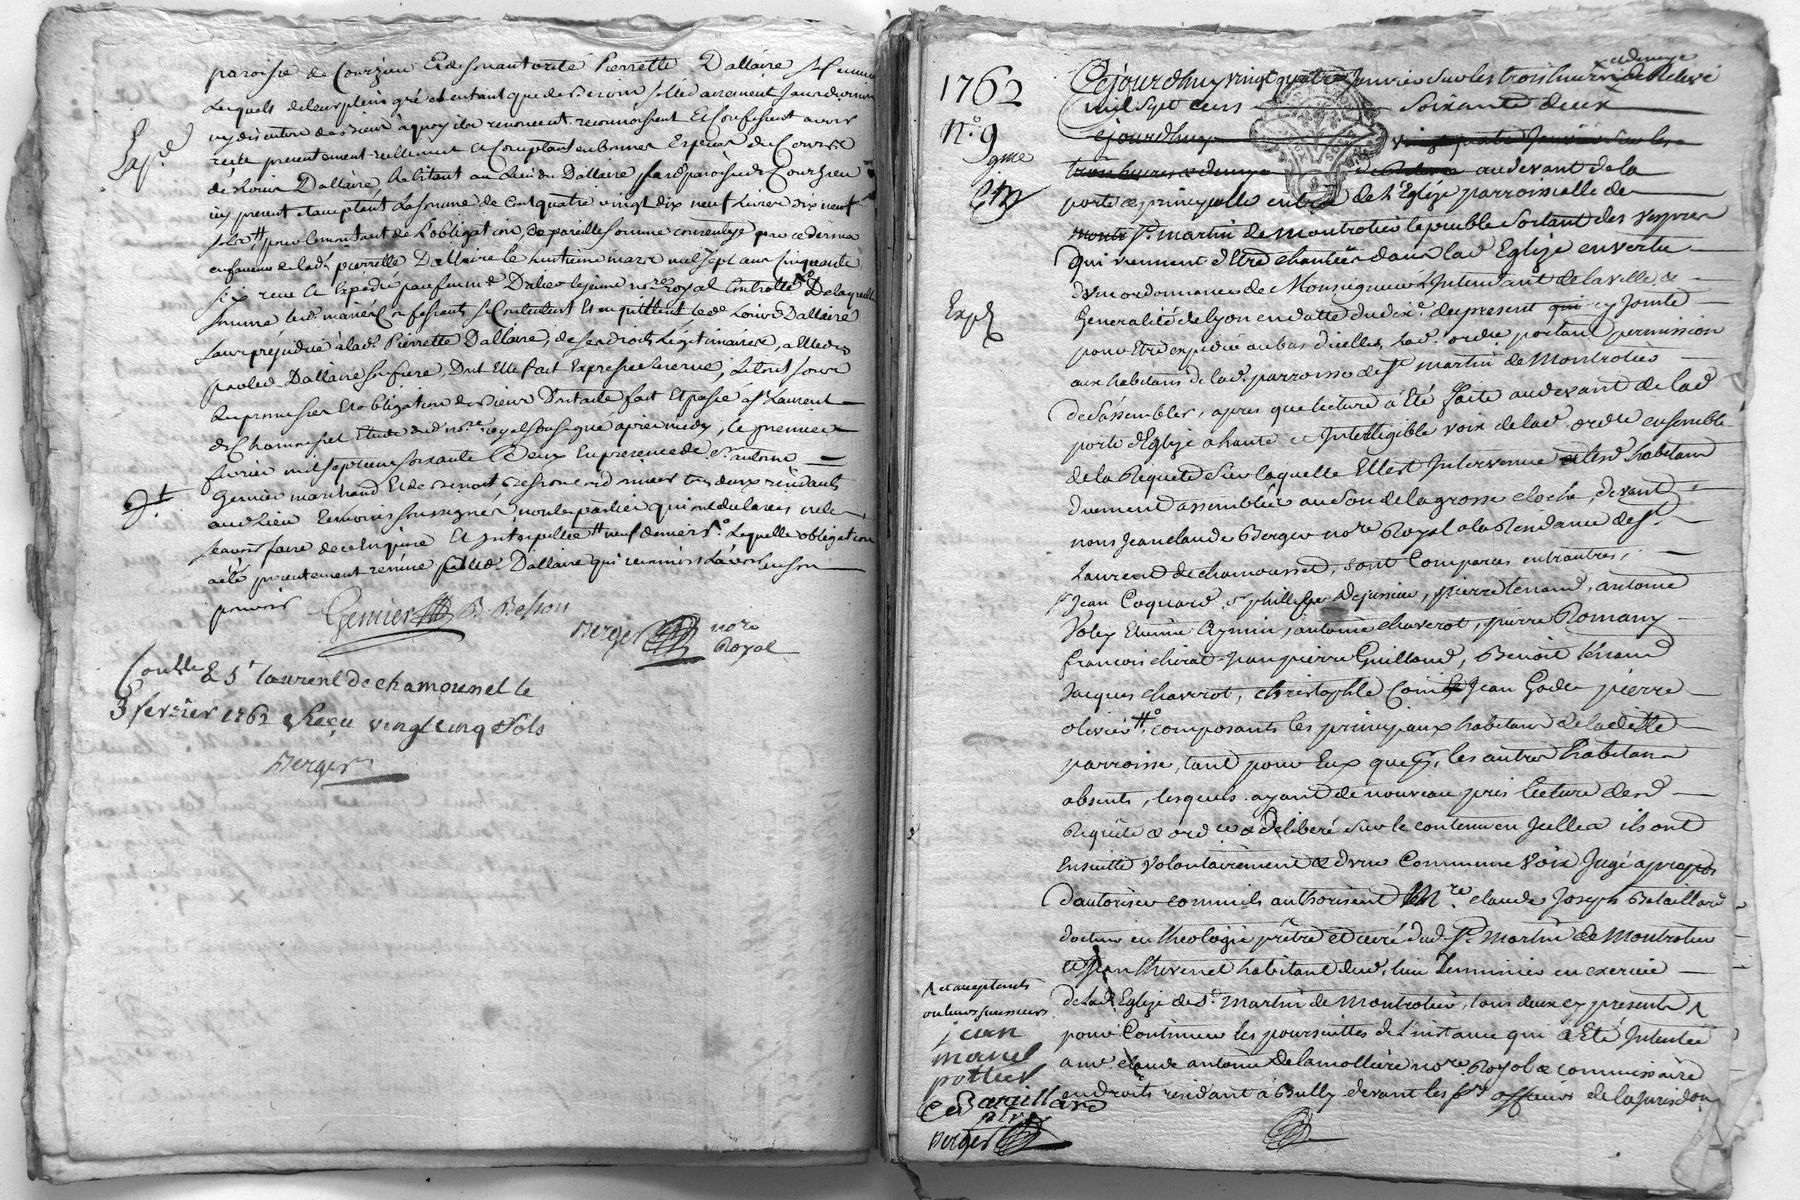 paroisse de Courzieu Et de son autorité Pierrette Dallaire sa femme
Lesquels de leur plein gré et en tant que de Besoin solidairement sans division
ny discution de a quoy ils renoncent reconnoissent Et Confessent avoir
Exp.é
reçu presentement reellement Et Comptant en bonnes Especes du Cours
de Louis Dallaire habitant au lieu du Dallaire susd. paroisse de Courzieu
icy present et acceptant La somme de Cent quatre vingt dix neuf Livres dix neuf
sols pour le montant de L'obligation de pareille somme consentuë par ce dernier
en faveur de lad.e pierrette Dallaire le huitieme mars mil sept cent Cinquante
six recue Et Expediée par no.re royal Controllé De laquelle
somme les d. mariés Confessants se Contentent Et en quittent led. Louis Dallaire
sans préjudice à lad.e Pierrette Dallaire, de ses droits Légitimaires, a Elle
par led Dallaire son frere, Dont Elle fait Expresse reserve, Le tout sous
les promesses Et obligation de Fait Et passé à St Laurent
de Chamousset Etude dud no.re royal soussigné après midy, le premier
fevrier mil sept cent soixante Deux En presence de sr antoine
Gernier marchand Et de Benoit Besson tous deux résidants
aud Lieu temoins soussignés, non les parties qui ont declarés ne le
sçavoir faire de ce Enquises Et interpellées neuf deniers Laquelle obligation
a été presentement remise aud Dallaire qui reconnoit L'avoir en son
pouvoir
Gernier B. Besson
Berger no.re
Royal
Conlle à St laurent de chamousset le
3 fevrier 1762 Reçu vingt cinq sols
Berger
1762
N.° 9
Cejourdhuy vingt quatre Janvier sur les trois heures et demye de Relevé
mil sept cens soixante deux
Cejourdhuy vingt quatre Janvier sur les
trois heures et demye au devant de la
porte et principalle entrée de l'Eglize parroissialle de
St. martin de Montrotier le peuble sortant des vespres
qui viennent d'Etre chantées dans lad Eglize en vertu
d'une ordonnance de Monseigneur L'Intendant de la ville &
Expé
Generalité de Lyon en datte du dix.e du present cy Jointe
pour Etre expediée au bas dicelles, lad.e ordre portant permission
aux habitans de lad. parroisse de St martin de Montrotier
de s'assembler, apres que lecture a Eté faite au devant de lad
porte d'Eglize a haute et Intelligible voix de lad ordre ensemble
de la Requete sur laquelle Elle est Intervenue et lesd habitans
duement assemblés au son de la grosse cloche, devant
nous Jean claude Berger no.re Royal a la Residence de St
Laurent de chamousset, sont Comparus entrautres,
sr Jean Coquard, sr philippe Dejussieu, pierre tenand, antoine
Voley Etienne Aymin, antoine chaverot, pierre Romany
francois chirat Jean pierre Guillaud, Benoit tenand
Jacques chaverot, christophle Jean Gode pierre
olivier composants les principaux habitans de laditte
parroisse, tant pour Eux que pr. les autres habitans
absents, lesquels ayant de nouveau pris lecture desd
Requête & ordre & deliberé sur le contenu en Icelles ils ont
Ensuitte volontairement & d'une Commune voix Jugé apropos
d'autoriser comme ils authorisent M.re claude Joseph Bataillard
docteur en theologie prêtre et curé dud. St. Martin de Montrotier
et Jean thivenet habitant dud. lieu Luminier en exercice
de lad Eglize de St. martin de Montrotier, tous deux cy presents
et acceptants
ou leurs successeurs
pour Continuer les poursuittes de l'instance qui a Eté Intentée
a me claude antoine Delamolliere no.re Royal & commissaire
en droits résidant à Bully devant les srs officiers de la Jurisdon
jean
morel
pottier
Bataillard
Berger